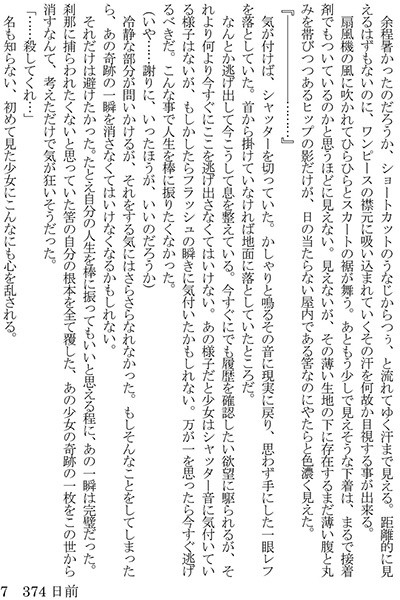 余程暑かったのだろうか、ショートカットのうなじからつぅ、と流れてゆく汗まで見える。距離的に見
えるはずもないのに、ワンピースの襟元に吸い込まれていくその汗を何故か目視する事が出来る。
扇風機の風に吹かれてひらひらとスカートの裾が舞う。あともう少しで見えそうな下着は、まるで接着
剤でもついているのかと思うほどに見えない。見えないが、その薄い生地の下に存在するまだ薄い腹と丸
みを帯びつつあるヒップの影だけが、日の当たらない屋内である筈なのにやたらと色濃く見えた。
『…………………………』
気が付けば、シャッターを切っていた。かしゃりと鳴るその音に現実に戻り、思わず手にした一眼レフ
を落としていた。首から掛けていなければ地面に落としていたところだ。
なんとか逃げ出して今こうして息を整えている。今すぐにでも履歴を確認したい欲望に駆られるが、そ
れより何より今すぐにここを逃げ出さなくてはいけない。あの様子だと少女はシャッター音に気付いてい
る様子はないが、もしかしたらフラッシュの瞬きに気付いたかもしれない。万が一を思ったら今すぐ逃げ
るべきだ。こんな事で人生を棒に振りたくなかった。
（いや……謝りに、いったほうが、いいのだろうか）
冷静な部分が問いかけるが、それをする気にはさらさらなれなかった。もしそんなことをしてしまった
ら、あの奇跡の一瞬を消さなくてはいけなくなるかもしれない。
それだけは避けたかった。たとえ自分の人生を棒に振ってもいいと思える程に、あの一瞬は完璧だった。
刹那に捕らわれたくないと思っていた筈の自分の根本を全て覆した、あの少女の奇跡の一枚をこの世から
消すなんて、考えただけで気が狂いそうだった。
「……殺してくれ…」
名も知らない、初めて見た少女にこんなにも心を乱される。
7　374日前